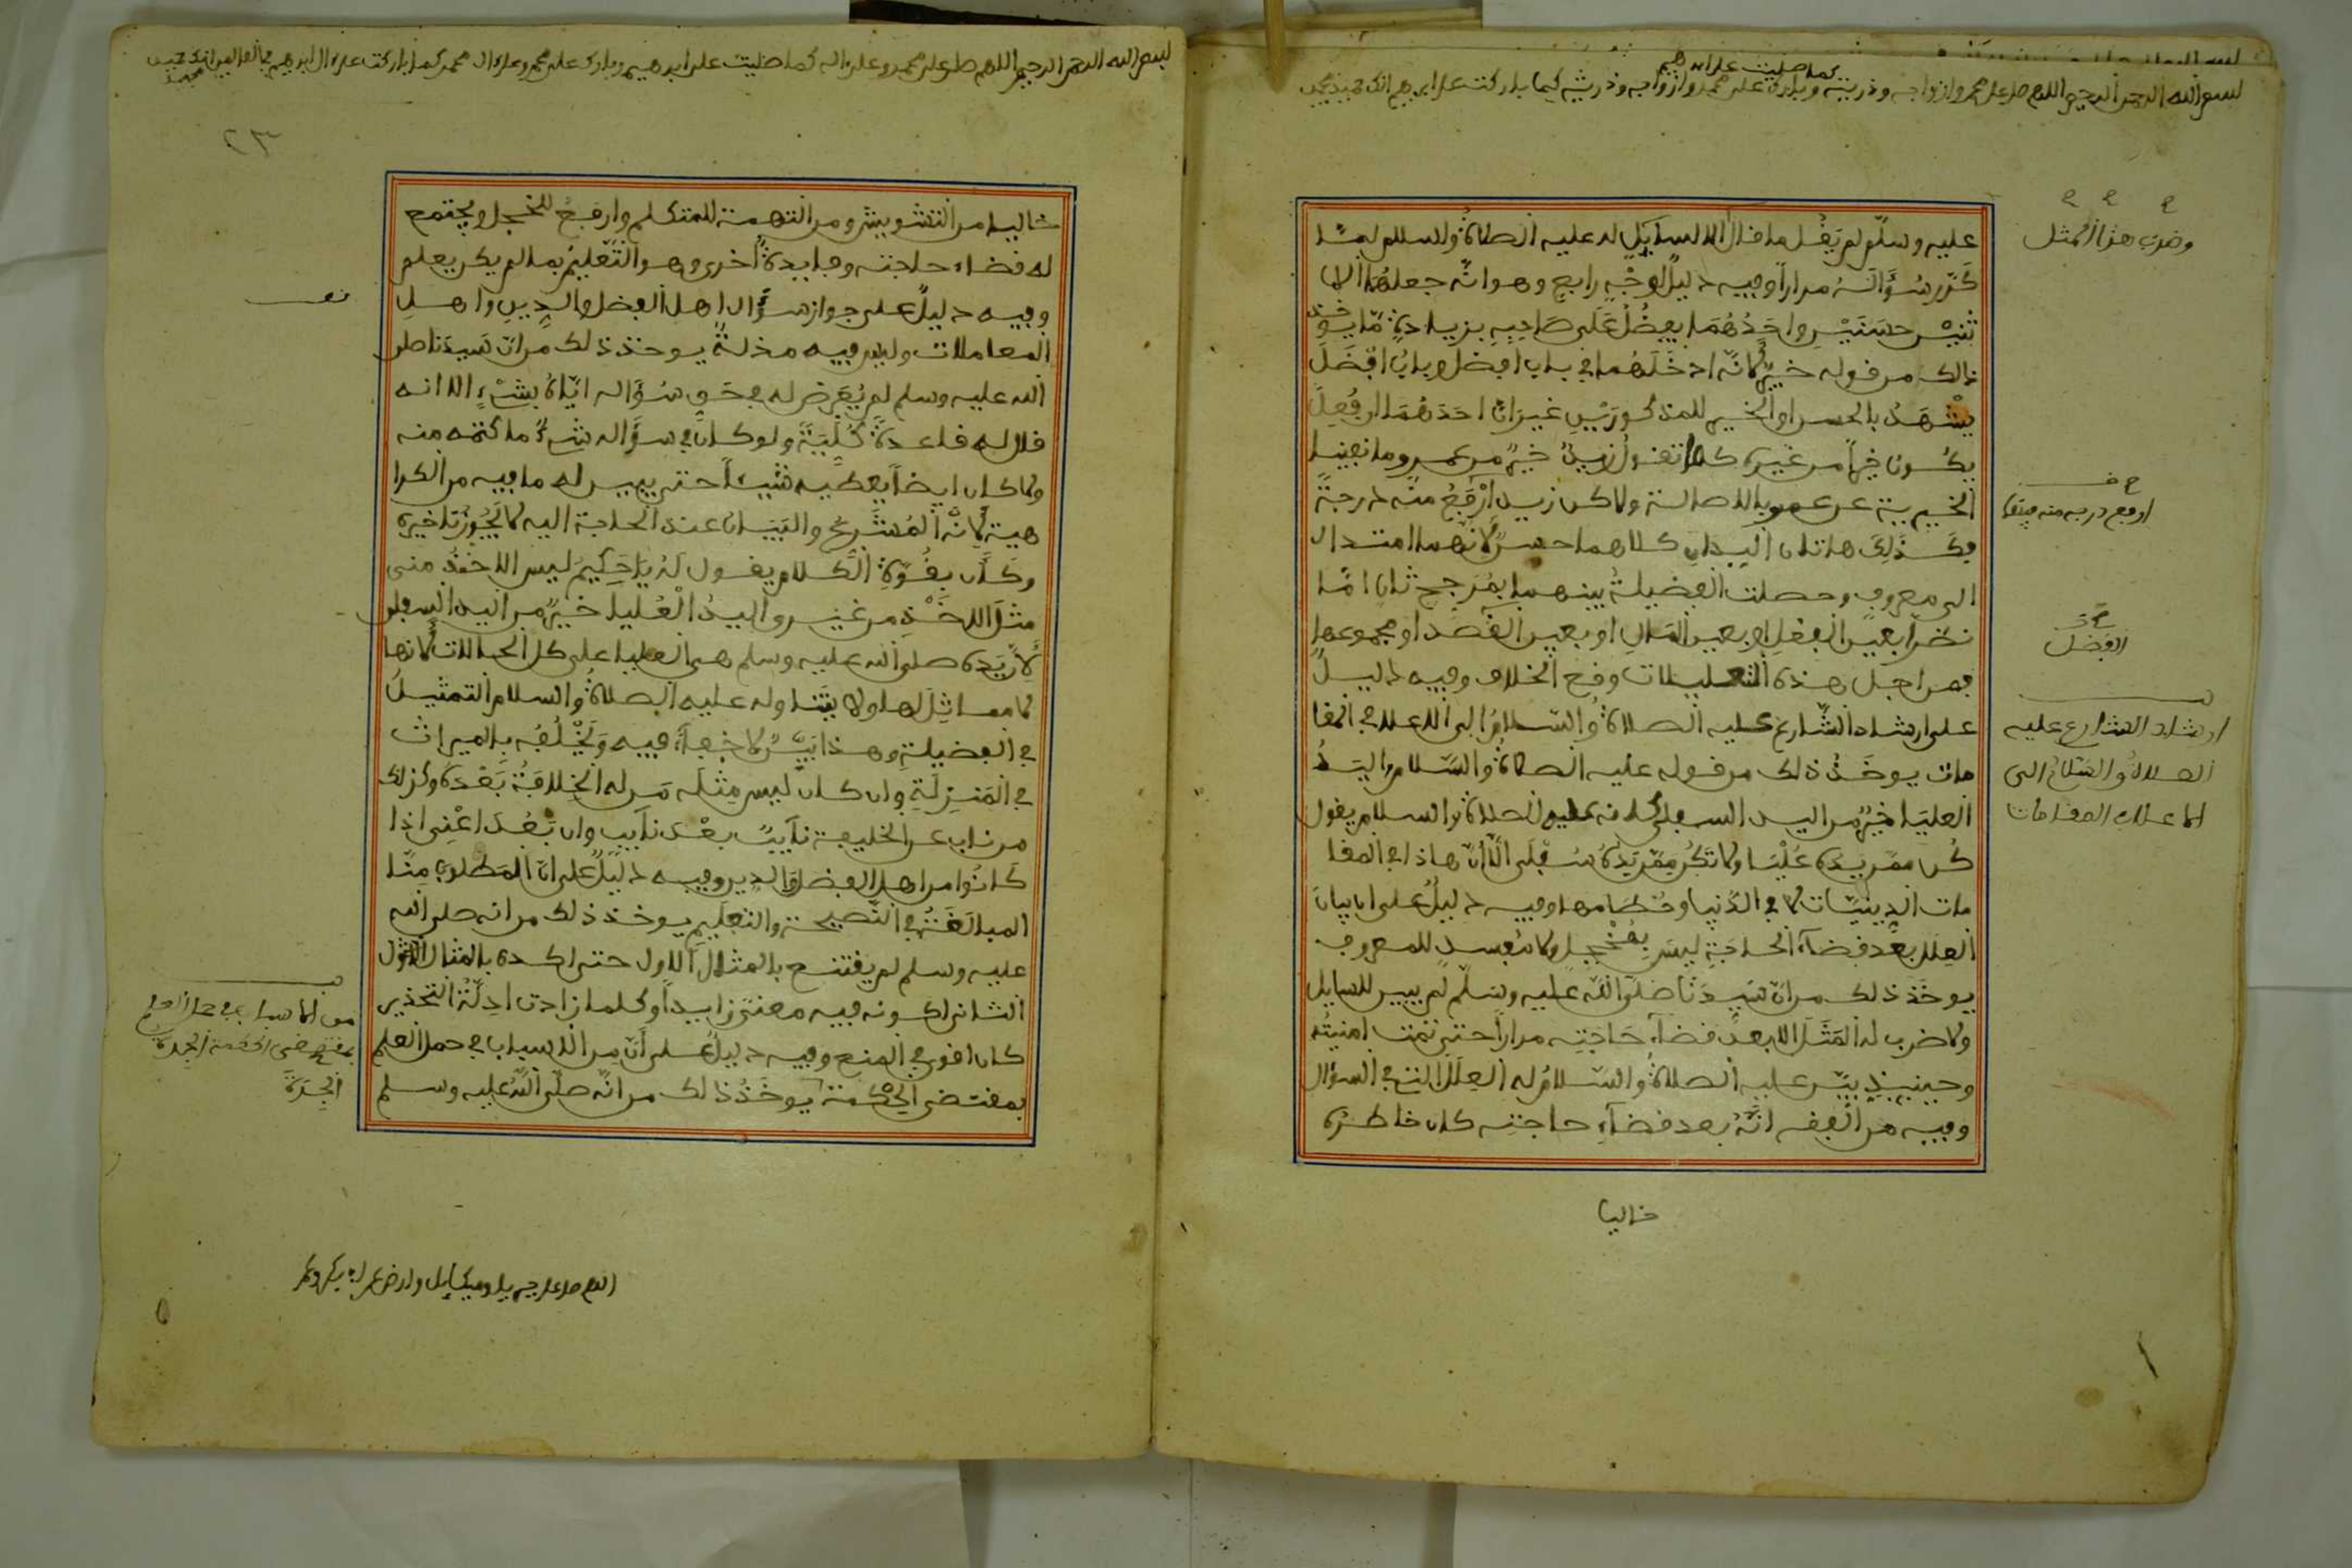 بسم الله الرحمن الرحيم اللهم صل على محمد وازواجه وذريته كما صليت على ابراهيم وبارك على محمد وازواجه وذريته كما باركت على ابراهيم انك حميد مجيد
عليه وسلم لم يقل ما قال للسايل له عليه الصلاة والسلام لما
كرر سؤاله مرارا وفيه دليل لوجه رابع وهو انه جعلهما
ثنين حسنين واحدهما يفضل على صاحبه بزيادة ما يوخذ
ذالك من قوله خير لانه ادخلهما في باب افضل وباب افضل
يشهد بالحسن او الخير للمذكورين غير ان احدهما ارفع
يكون خيرا من غيره كما تقول زيد خير من عمرو ما نفينا
الخيرية عن عمرو بالاصالة ولاكن زيد ارفع منه درجة
فكذلك هاتان اليدان كلاهما حسن لانهما امتدان
الى معروف وحصلت الفضيلة بينهما بمرجح ثان اما
نظرا بعين الفعل او بعين المال او بعين القصد او مجموعها
فمن اجل هذه التعليلات وقع الخلاف وفيه دليل
على ارشاد الشارع عليه الصلاة والسلام الى الاعلا في المقا
مات يوخذ ذلك من قوله عليه الصلاة والسلام اليد
العليا خير من اليد السفلى كانه عليه الصلاة والسلام يقول
كن ممن يده عليا ولا تكن ممن يده سفلى الا ان هاذا في المقا
مات الدينيات لا في الدنيا وحطامها وفيه دليل على ان بيان
العلل بعد قضاء الحاجة ليس بمخجل ولا مفسد للمعروف
يوخذ ذلك من ان سيدنا صلى الله عليه وسلم لم يبين للسايل
ولا ضرب له المثل الا بعد قضاء حاجته مرارا حتى تمت امنيته
وحينيذ بين عليه الصلاة والسلام له العلل التي في السؤال
وفيه من الفقه انه بعد قضاء حاجته كان خاطره
خاليا
وضرب هذا المثل
ارفع درجة منه
الفضل
ارشاد الشارع عليه
الصلاة والسلام الى
الاعلا في المقامات
بسم الله الرحمن الرحيم اللهم صل على محمد وعلى اله كما صليت على ابراهيم وبارك على محمد وعلى ال محمد كما باركت على ال ابراهيم في العالمين انك حميد مجيد
٢٣
خاليا من التشويش ومن التهمة للمتكلم وارفع للخجل ويجتمع
له قضاء حاجته وفايدة اخرى وهو التعليم بما لم يكن يعلم
وفيه دليل على جواز سؤال اهل الفضل والدين واهل
المعاملات وليس فيه مذلة يوخذ ذلك من ان سيدنا صلى
الله عليه وسلم لم يعرض له في حق سؤاله اياه بشيء الا انه
قال له قاعدة كلية ولو كان في سؤاله شيء ما كتمه منه
ولا كان ايضا يعطيه شيئا حتى يبين له ما فيه من الكرا
هية لانه المشرع والبيان عند الحاجة اليه لا يجوز تاخيره
وكان بقوة الكلام يقول له يا حكيم ليس الاخذ مني
مثل الاخذ من غيري واليد العليا خير من اليد السفلى
لان يده صلى الله عليه وسلم هي العليا على كل الحالات لانها
لا مماثل لها ولا يتناوله عليه الصلاة والسلام التمثيل
في الفضيلة وهذا بين لا خفاء فيه ويخلفه بالميراث
في المنزلة وان كان ليس مثله من له الخلافة بعده وكذلك
من ناب عن الخليفة نايبا بعد نايب وان بعد اعني اذا
كانوا من اهل الفضل والدين وفيه دليل على ان المطلوب منا
المبالغة في النصيحة والتعليم يوخذ ذلك من انه صلى الله
عليه وسلم لم يقتنع بالمثال الاول حتى اكده بالمثال
الثاني لكونه فيه معنى زايدا وكلما زادت ادلة التحذير
كان اقوى في المنع وفيه دليل على ان من الاسباب في حمل العلم
بمقتضى الحكمة يوخذ ذالك من انه صلى الله عليه وسلم
من الاسباب في حمل العلم
بمقتضى الحكمة
اللهم صل على جبريل وميكايل وارض عن ابي بكر وعمر